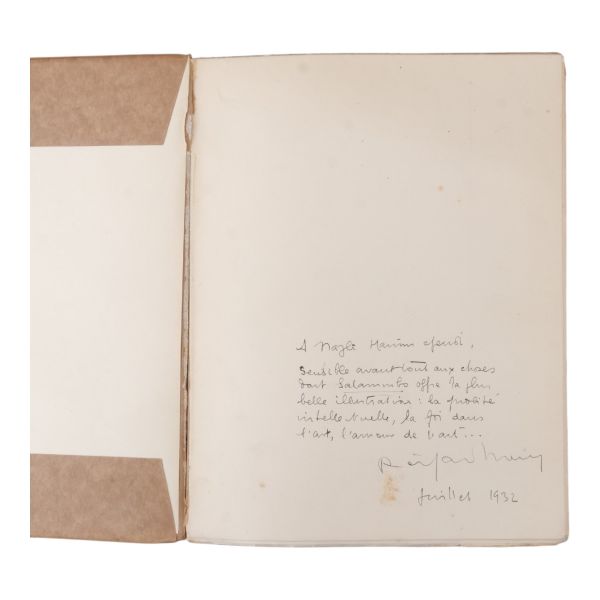 A Nazli Hanim efendi,
Sensible avant tout aux choses
dont Salammbo offre la plus
belle illustration : la probité
intellectuelle, la foi dans
l'art, l'amour de l'art...
Juillet 1932